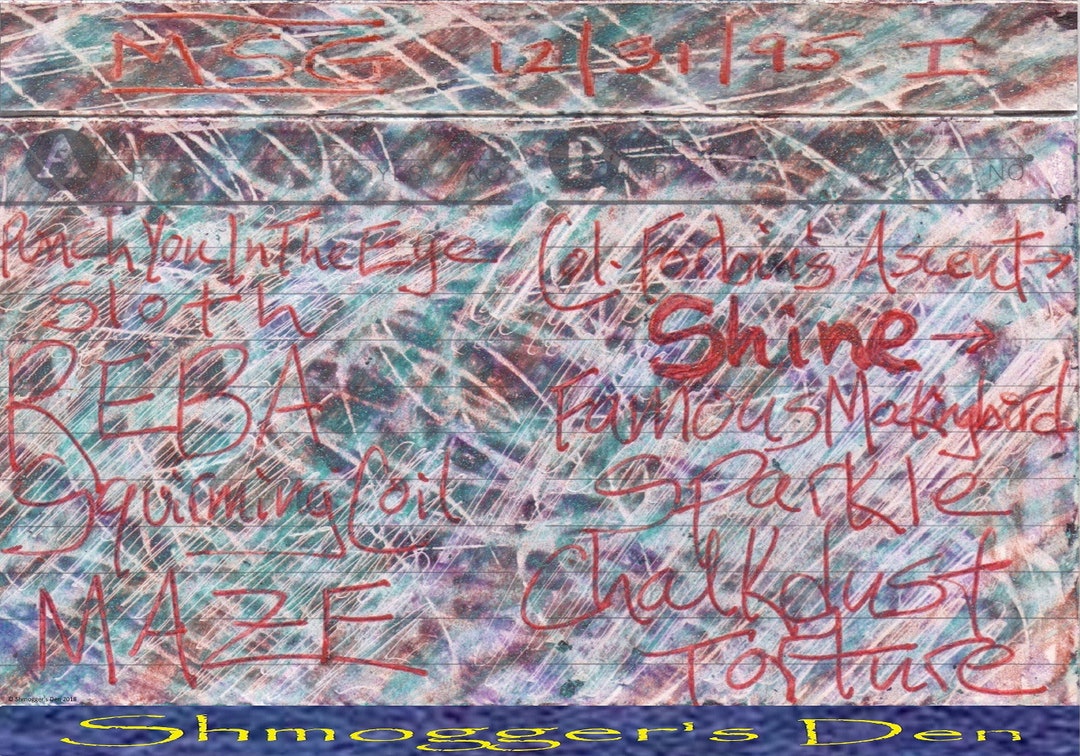 MSG 12/31/95 I
A YES NO
B YES NO
Punch You In The Eye
Sloth
REBA
Squirming Coil
MAZE
Col. Forbin's Ascent →
Shine →
Famous Mockingbird
Sparkle
Chalkdust
Torture
© Shmogger's Den 2018
Shmogger's Den